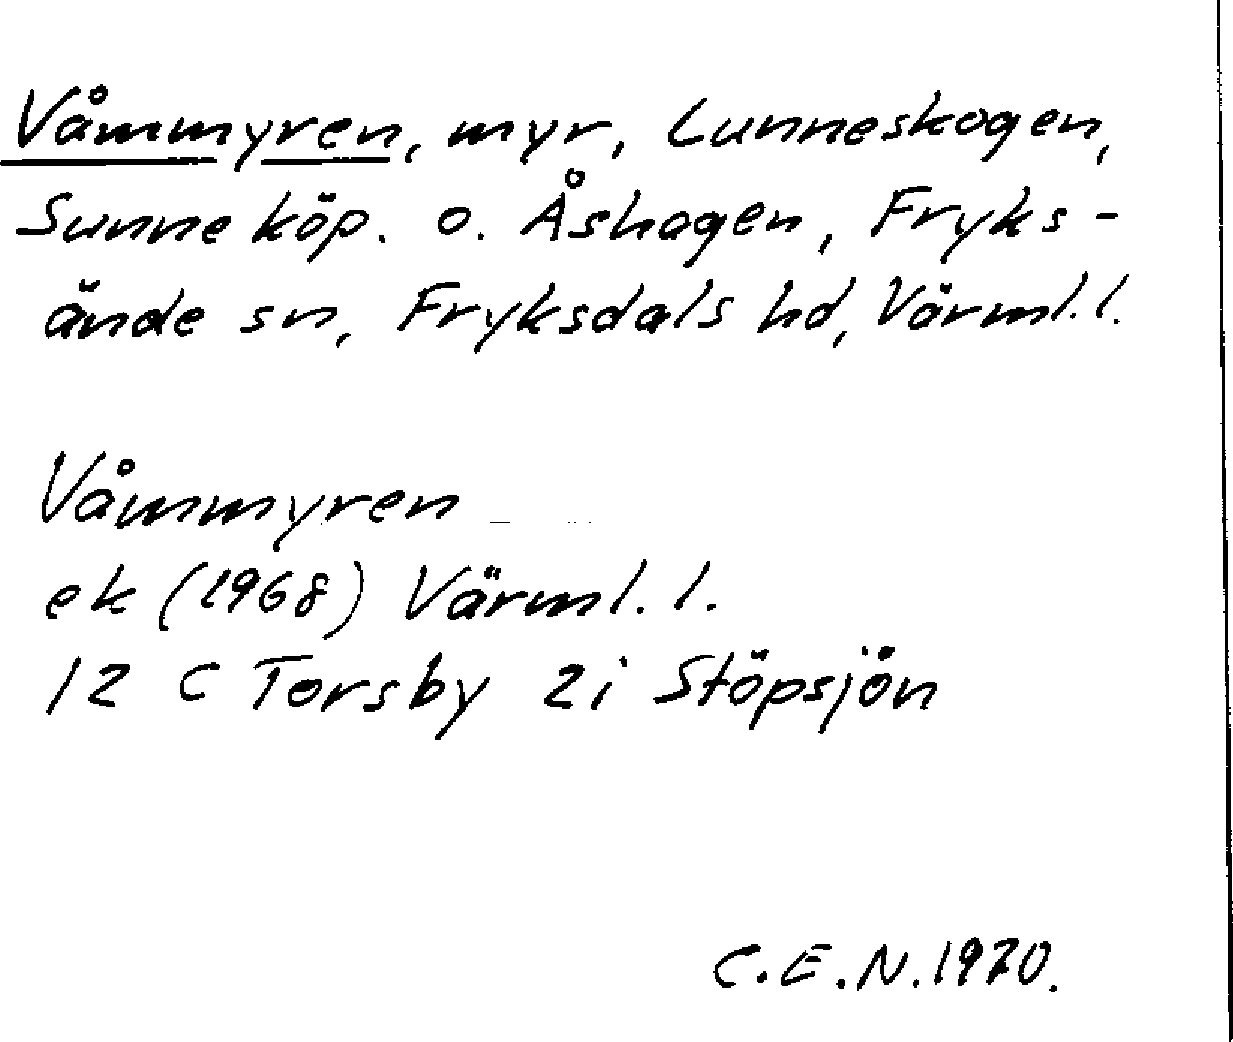 Våmmyren, myr, Lunneskogen,
Sunne köp. o. Åshagen, Fryks-
ände sn, Fryksdals hd, Värml. l.
Våmmyren
ek (1968) Värml. l.
12 C Torsby 2i Stöpsjön
C.E.N. 1970.